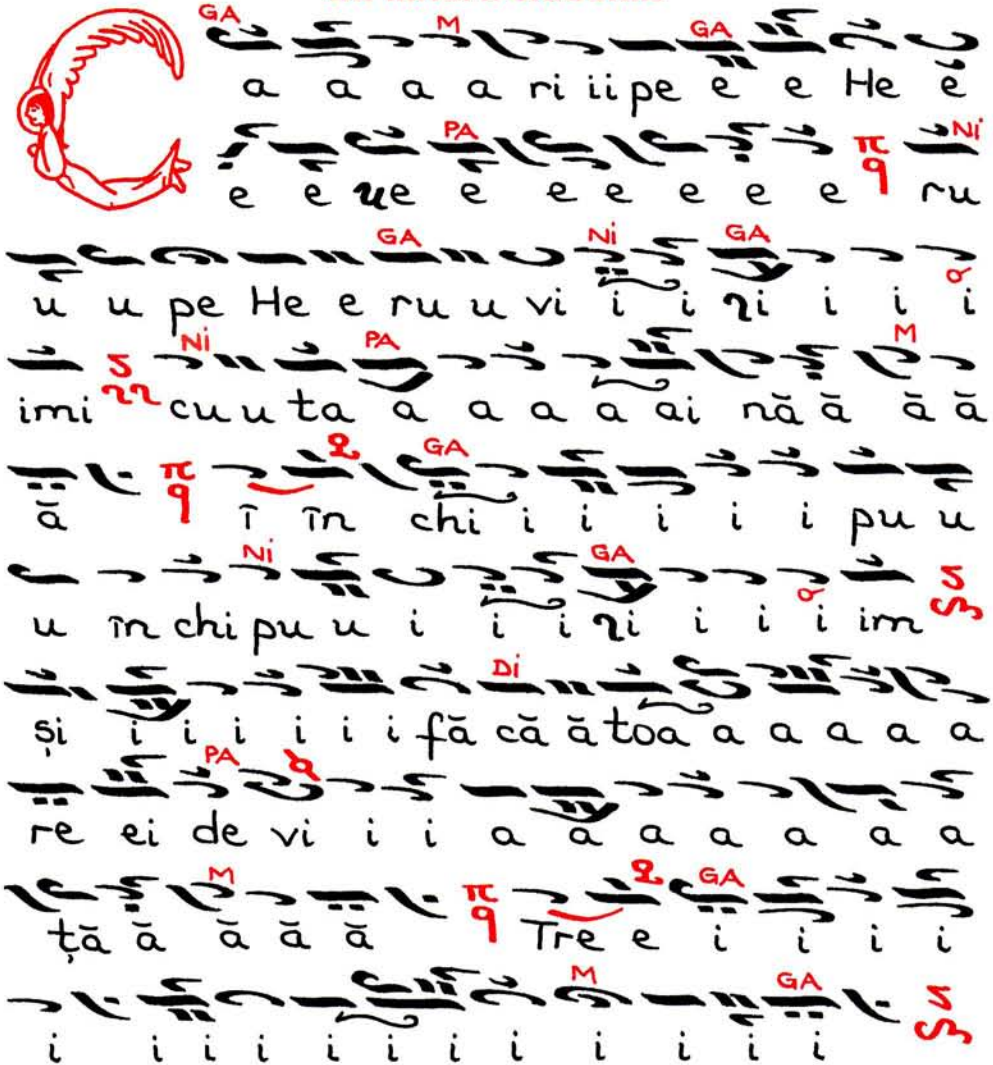 GA M GA
C a a a a ri ii pe e e He e
PA π q Ni
e e ue e e e e e e e ru
GA Ni GA
u u pe He e ru u vi i i ri i i i
Ni PA M
imi cu u ta a a a a ai nă ă ă ă
π q GA
ă î în chi i i i i i pu u
Ni GA
u în chi pu u i i i ri i i i im
Di
și i i i i i i fă că ă toa a a a a a
PA
re ei de vi i i a a a a a a a
M π q GA
ță ă ă ă ă Tre e i i i i
M GA
i i i i i i i i i i i i